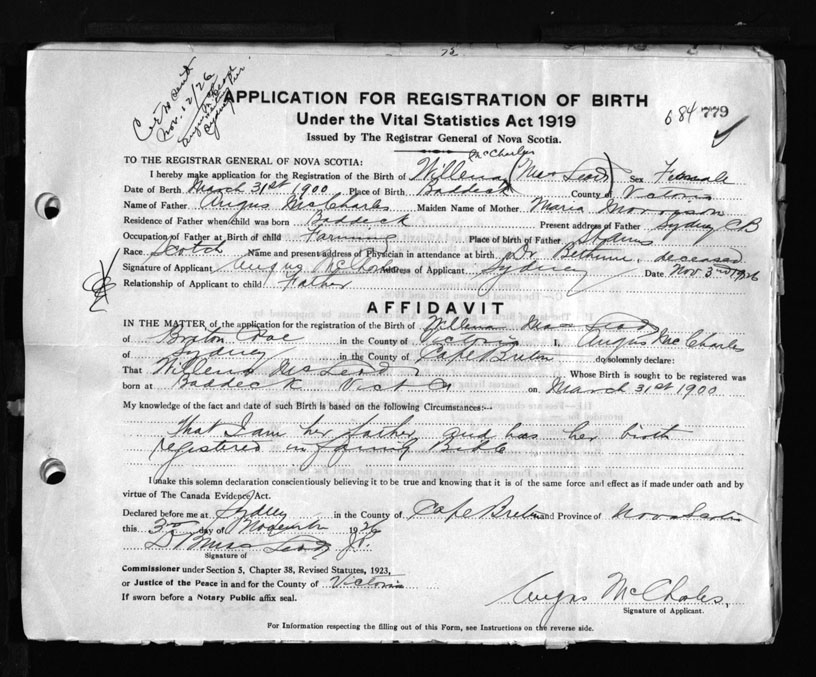 72
Cert Sent
Nov. 12/26
Angus
Sydney
APPLICATION FOR REGISTRATION OF BIRTH
Under the Vital Statistics Act 1919
Issued by The Registrar General of Nova Scotia.
684 779
TO THE REGISTRAR GENERAL OF NOVA SCOTIA:
McCharles
I hereby make application for the Registration of the Birth of Willena (MacLeod) Sex Female
Date of Berth March 31st 1900 Place of Birth Baddeck County of Victoria
Name of Father Angus McCharles Maiden Name of Mother Maria Morrison
Residence of Father when child was born Baddeck Present address of Father Sydney CB
Occupation of Father at Birth of child Farming Place of birth of Father
Race Scotch Name and present address of Physician in attendance at birth Dr. Bethune, deceased
Signature of Applicant Angus McCharles Address of Applicant Sydney Date Nov 3rd 1926
Relationship of Applicant to child Father
AFFIDAVIT
IN THE MATTER of the application for the registration of the Birth of Willena MacLeod
of in the County of Victoria I, Angus McCharles
of Sydney in the County of Cape Breton do solemnly declare:
That Willena McLeod Whose Birth is sought to be registered was
born at Baddeck Vict Co on March 31st 1900
My knowledge of the fact and date of such Birth is based on the following Circumstances:-
That I am her father and has her birth
registered in family Bible
I make this solemn declaration conscientiously believing it to be true and knowing that it is of the same force and effect as if made under oath and by
virtue of The Canada Evidence Act.
Declared before me at Sydney in the County of Cape Breton and Province of Nova Scotia
this 3rd day of November 1926
Signature of
Commissioner under Section 5, Chapter 38, Revised Statutes, 1923,
or Justice of the Peace in and for the County of Victoria
If sworn before a Notary Public affix seal.
Angus McCharles,
Signature of Applicant.
For Information respecting the filling out of this Form, see Instructions on the reverse side.